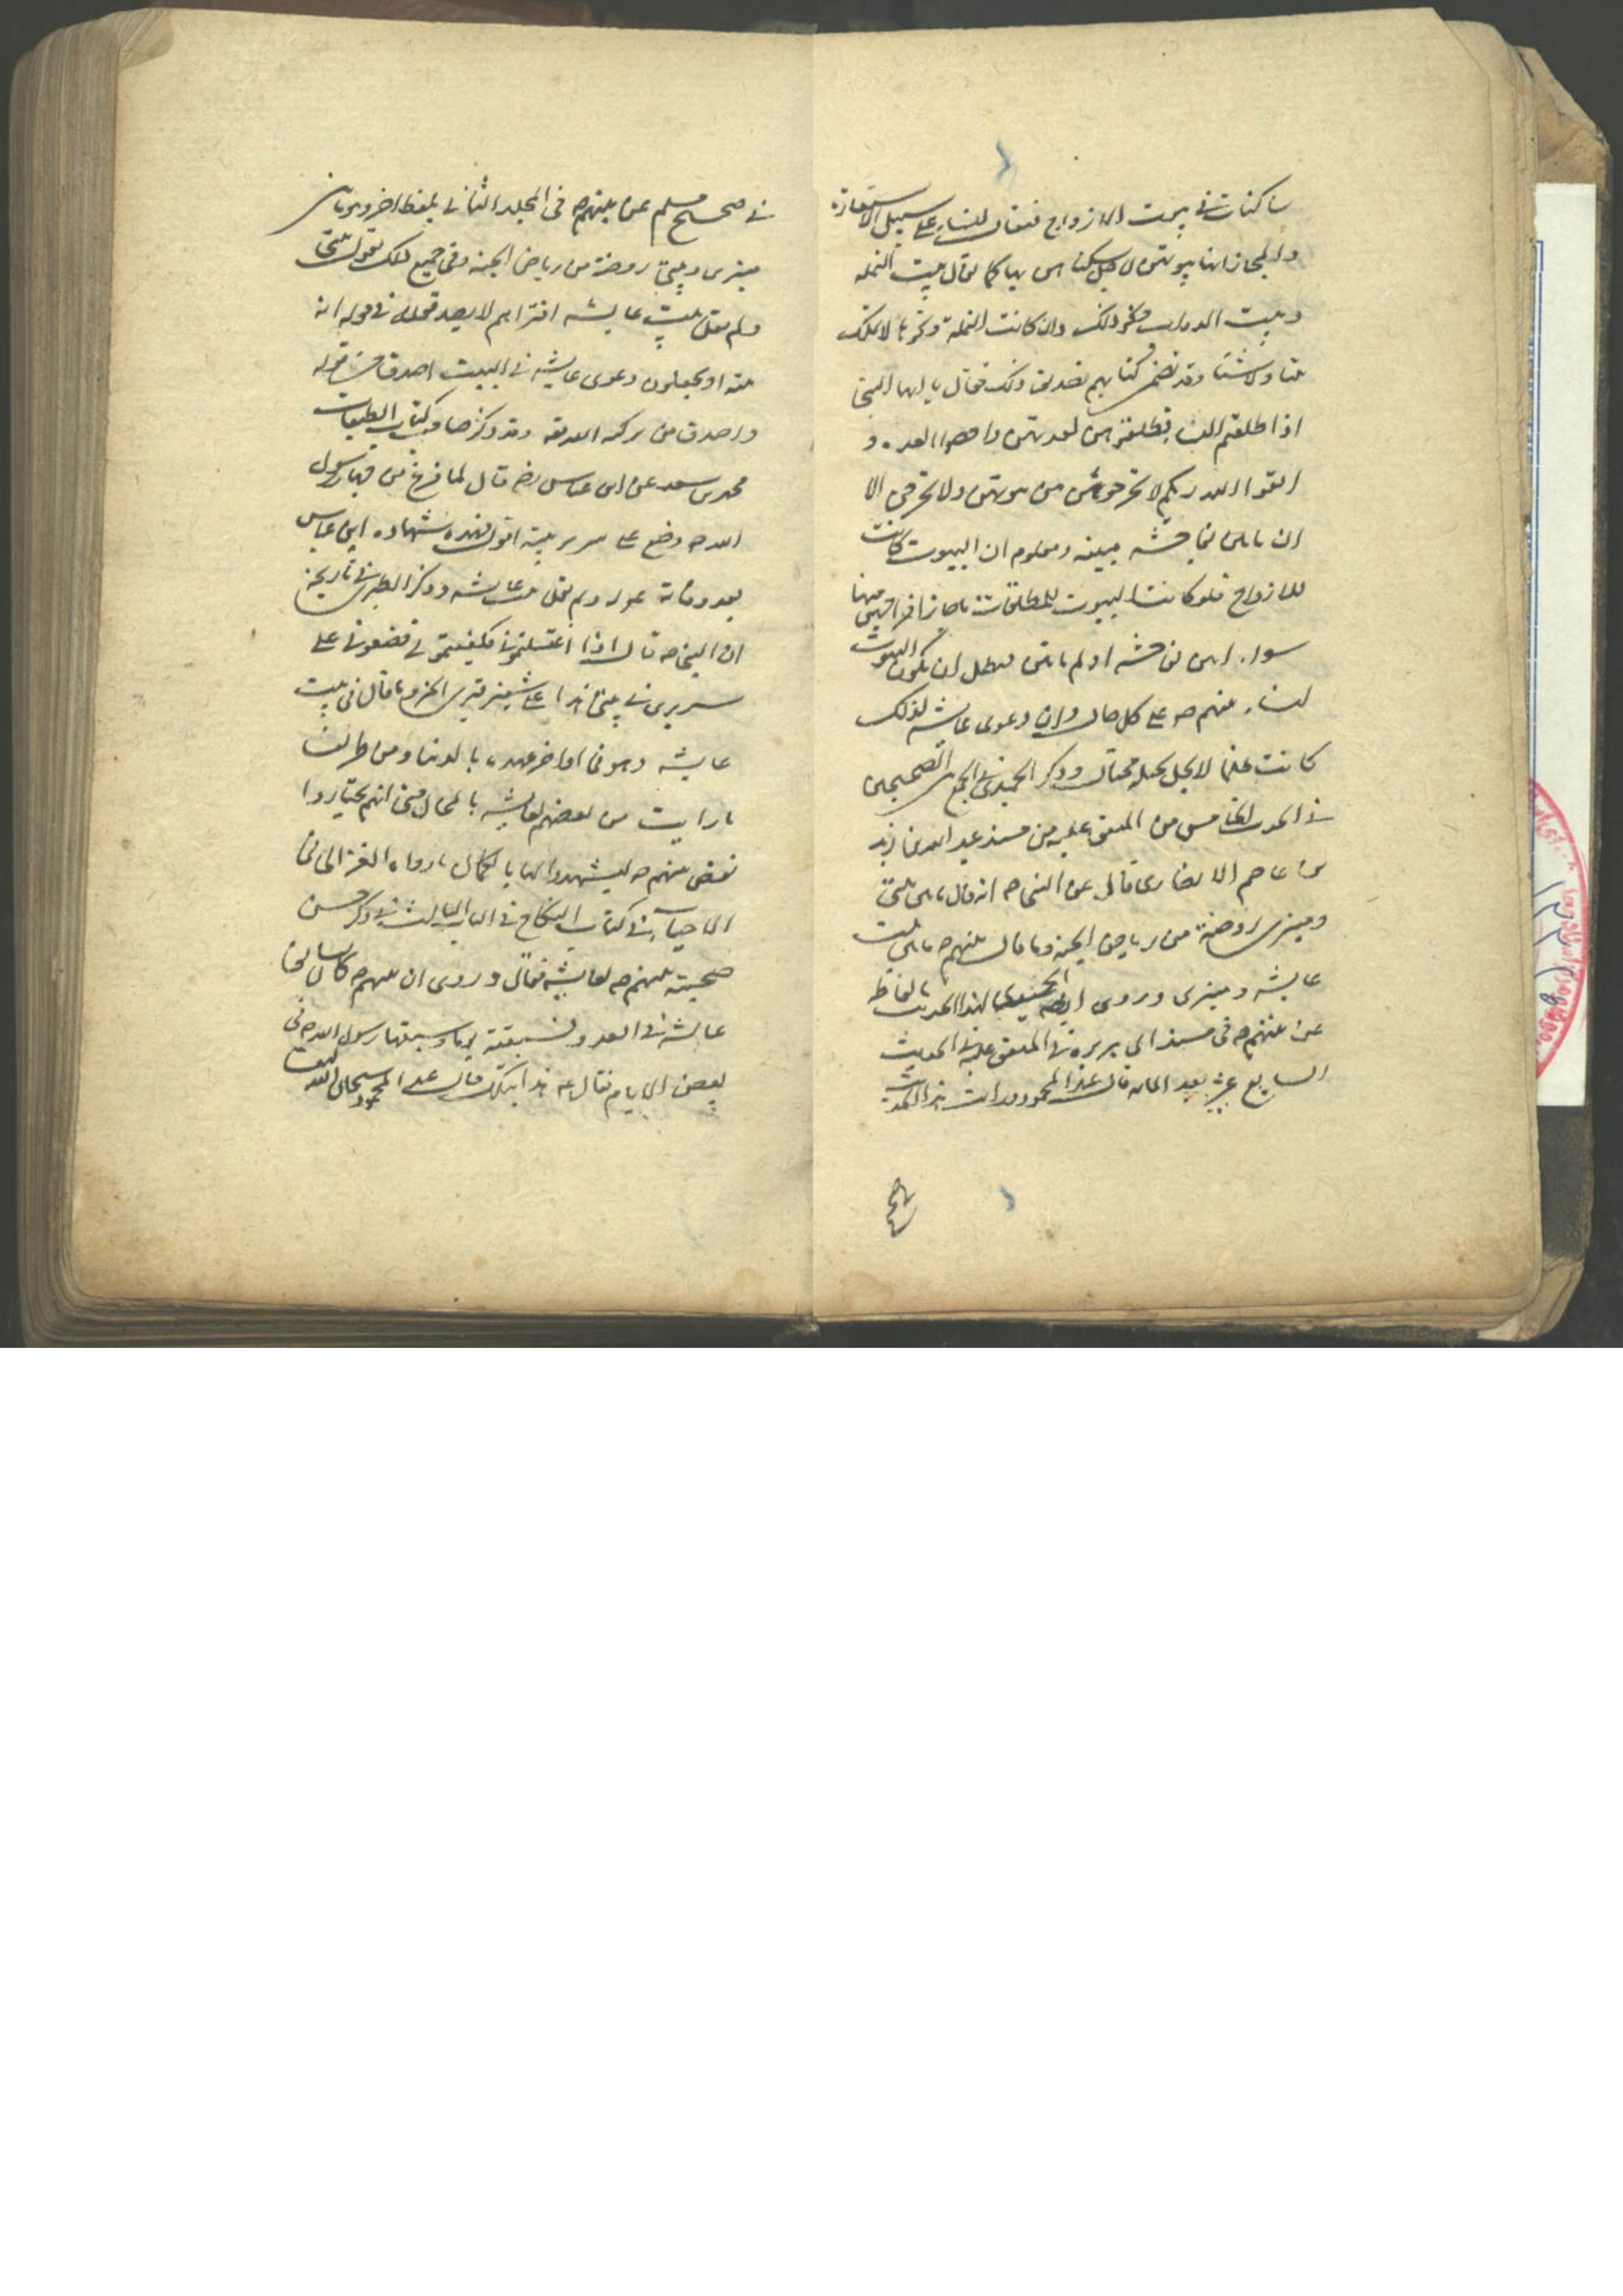 ساكنات في بيوت الازواج فيقال للنساء على سبيل الاستعارة
والمجاز انها بيوتهن لاجل سكناهن بها كما يقال بيت النملة
وبيت الدواب ونحو ذلك وان كانت النملة ونحوها لا تملك
بيتا ولا شيئا وقد تضمن كتابهم تصديق ذلك فقال يا ايها النبي
اذا طلقتم النساء فطلقوهن لعدتهن واحصوا العدة و
اتقوا الله ربكم لا تخرجوهن من بيوتهن ولا يخرجن الا
ان ياتين بفاحشة مبينة ومعلوم ان البيوت كانت
للازواج فلو كانت البيوت للمطلقات ما جاز اخراجهن منها
سواء اتين بفاحشة او لم ياتين فبطل ان يكون البيوت
لنساء نبيهم ص على كل حال وان دعوى عايشة لذلك
كانت ظلما لا يحل بحيلة محتال وذكر الحميدي في الجمع بين الصحيحين
في الحديث الخامس من المتفق عليه من مسند عبد الله بن زيد
بن عاصم الانصاري قال عن النبي ص انه قال ما بين بيتي
ومنبري روضة من رياض الجنة وما قال نبيهم ص ما بين بيت
عايشة ومنبري وروى ايضا الحميدي هذا الحديث بالفاظه
عن نبيهم ص في مسند ابي هريرة في المتفق عليه في الحديث
السابع عشر بعد المائة قال عبد المحمود ورايت هذا الحديث
صح
في صحيح مسلم عن نبيهم ص في المجلد الثاني بلفظ اخر وهو ما بين
منبري وبيتي روضة من رياض الجنة وفي جميع ذلك يقول بيتي
ولم يقل بيت عايشة افتراهم لا يصدقونه في قوله انه
بيته او يجعلون دعوى عايشة في البيت اصدق من قوله
واصدق من تزكية الله له وقد ذكر صاحب كتاب الطبقات
محمد بن سعد عن ابن عباس رضه قال لما فرغ من جهاز رسول
الله ص وضع على سرير في بيته اقول فهذه شهادة ابن عباس
بعد وفاته ولم يقل بيت عايشة وذكر الطبري في تاريخه
ان النبي ص قال اذا غسلتموني وكفنتموني فضعوني على
سريري في بيتي هذا على شفير قبري الخبر وما قال في بيت
عايشة وهو في اواخر عهده بالدنيا ومن طرايف
ما رايت من بعضهم لعايشة بالمحال حتى انهم يختاروا
نقص نبيهم ص ليشهدوا لها بالكمال ما رواه الغزالي في
الاحياء في كتاب النكاح في الباب الثالث في ذكر حسن
صحبة نبيهم ص لعايشة فقال وروى ان نبيهم ص كان سابق
عايشة في العدو فسبقته يوما وسبقها رسول الله ص في
بعض الايام فقال ع هذا بتلك قال عبد المحمود سبحان الله كيف